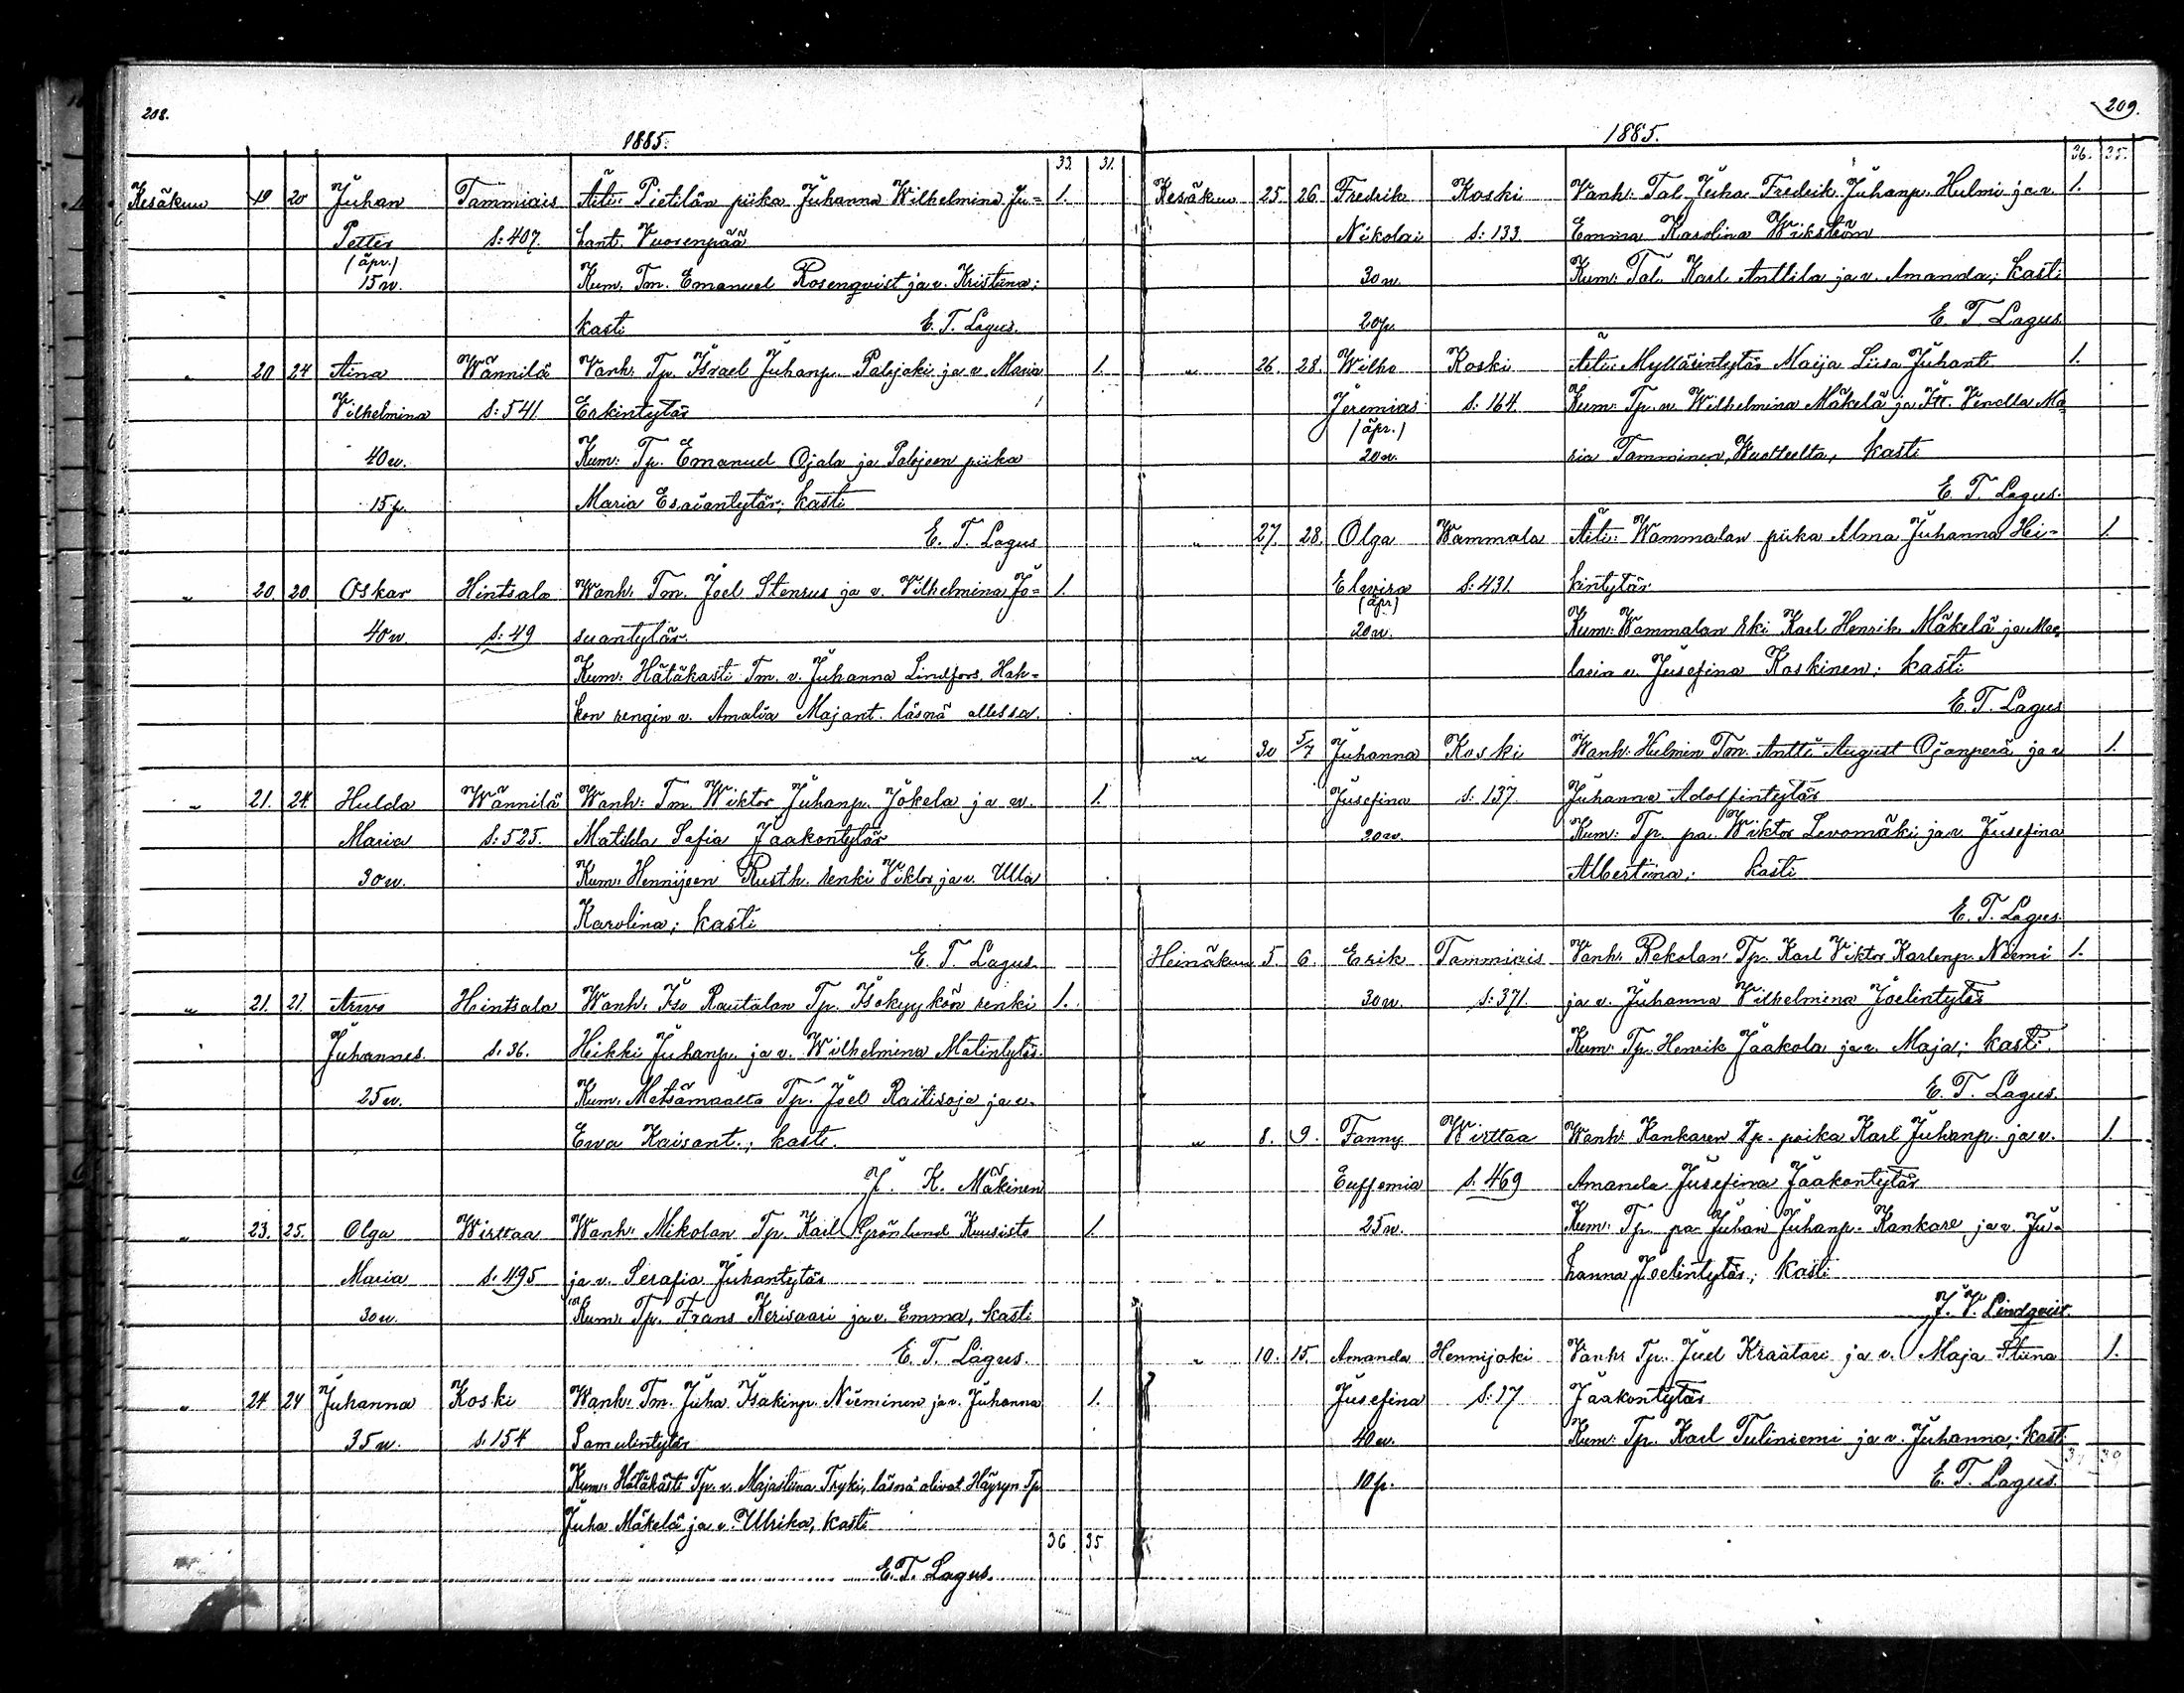 208.
1885.
33. 31.
Kesäkuu 19 20 Juhan Tammiais Äiti: Pietilän piika Juhanna Wilhelmina Ju= 1.
Petter S: 407. hant. Vuorenpää
(äpr.)
15 w. Kum. Tm. Emanuel Rosenqvist ja v. Kristiina;
kasti E. T. Lagus.
" 20 24 Aina Wännilä Vanh. Tp. Israel Juhanp. Palojoki ja v. Maria 1.
Vilhelmina S: 541. Erkintytär
40 w. Kum: Tp. Emanuel Ojala ja Palojoen piika
15 p. Maria Esaiantytär; kasti
E. T. Lagus
" 20 20 Oskar Hintsala Wanh. Tm. Joel Stenrus ja v. Vilhelmina Jo= 1.
40 w. S: 49 suantytär.
Kum: Hätäkasti Tm. v. Juhanna Lindfors, Hah=
kon rengin v. Amalia Majant. läsnä ollessa.
" 21. 24. Hulda Wännilä Wanh: Tm. Wiktor Juhanp. Jokela ja v. 1.
Maria S: 525. Matilda Sofia Jaakontytär
30 w. Kum. Hennijoen Rusth. renki Viktor ja v. Ulla
Karolina; kasti
E. T. Lagus.
" 21. 21. Arvo Hintsala Wanh. Iso Rautalan Tp. Isokyykön renki 1.
Juhannes. S. 36. Heikki Juhanp. ja v. Wilhelmina Matintytär.
25 w. Kum. Metsämaalta Tp. Joel Raitisoja ja v.
Ewa Kaisant.; kasti.
J. K. Mäkinen
" 23. 25. Olga Wirttaa Wanh: Mikolan Tp. Karl Grönlund Kuusisto 1.
Maria S. 495 ja v. Serafia Juhantytär
30 w. Kum. Tp. Frans Kerisaari ja v. Emma, kasti
E. T. Lagus.
" 24. 24 Juhanna Koski Wanh: Tm. Juha Isakinp. Nieminen ja v. Juhanna 1.
35 w. S. 154 Samulintytär
Kum: Hätäkasti Tp. v. Majastiina Tryki, läsnä olivat Häyryn Tp.
Juha Mäkelä ja v. Ulrika, kasti
36. 35
E. T. Lagus.
209.
1885.
36. 35.
Kesäkuu 25. 26. Fredrik Koski Vanh: Tal. Juha Fredrik Juhanp. Hulmi ja v. 1.
Nikolai S: 133. Emma Karolina Wikström
30 w. Kum: Tal. Karl Anttila ja v. Amanda; kasti
20 p. E. T. Lagus.
" 26. 28. Wilho Koski Äiti: Mylläsintytär Maija Liisa Juhant. 1.
Jeremias S: 164. Kum: Tp. v. Wilhelmina Mäkelä ja Itt. Vendla Ma=
(äpr.)
20 w. ria Tamminen, kasti
E. T. Lagus.
" 27. 28. Olga Wammala Äiti: Wammalan piika Alma Juhanna Hei= 1.
Elwira S: 431. kintytär
(äpr)
20 w. Kum: Wammalan Eki Karl Henrik Mäkelä ja Maa
larin v. Jusefina Koskinen; kasti
E. T. Lagus
" 30 5/7 Juhanna Koski Wanh: Hulmin Tm. Antti August Ojanperä ja v 1.
Jusefina S: 137. Juhanna Adolfintytär
20 w. Kum: Tp. pa. Wiktor Levomäki ja v. Jusefina
Albertiina; kasti
E. T. Lagus.
Heinäkuu 5. 6. Erik Tammiais Vanh: Rekolan Tp. Karl Viktor Karlenp. Niemi 1.
30 w. S: 371. ja v. Juhanna Vilhelmina Joelintytär
Kum: Tp. Henrik Jaakola ja v. Maja; kasti.
E. T. Lagus.
" 8. 9. Fanny Wirttaa Wanh: Kankaren Tp. poika Karl Juhanp. ja v. 1.
Euffemia S. 469 Amanda Jusefina Jaakontytär
25 w. Kum: Tp. pa. Juhan Juhanp. Kankare ja v. Ju=
hanna Joelintytär; kasti
J. V. Lindqvist.
" 10. 15. Amanda Hennijoki Vanh: Tp. Juel Kraatari ja v. Maja Stiina 1.
Jusefina S: 17 Jaakontytär
40 w. Kum: Tp. Karl Tuliniemi ja v. Juhanna; kasti
10 p. E. T. Lagus.